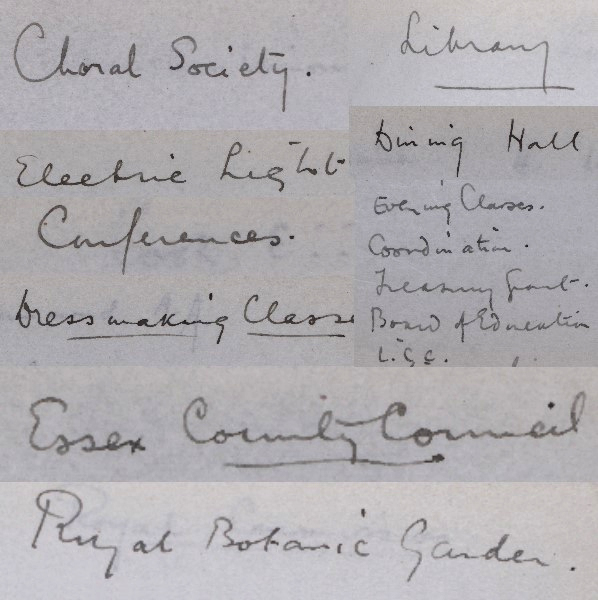 Choral Society.
Library
Electric Light
Dining Hall
Conferences.
Evening Classes.
Coordination.
Treasury Grant.
Board of Education
L.G.C.
Dressmaking Classe
Essex County Council
Royal Botanic Garden.